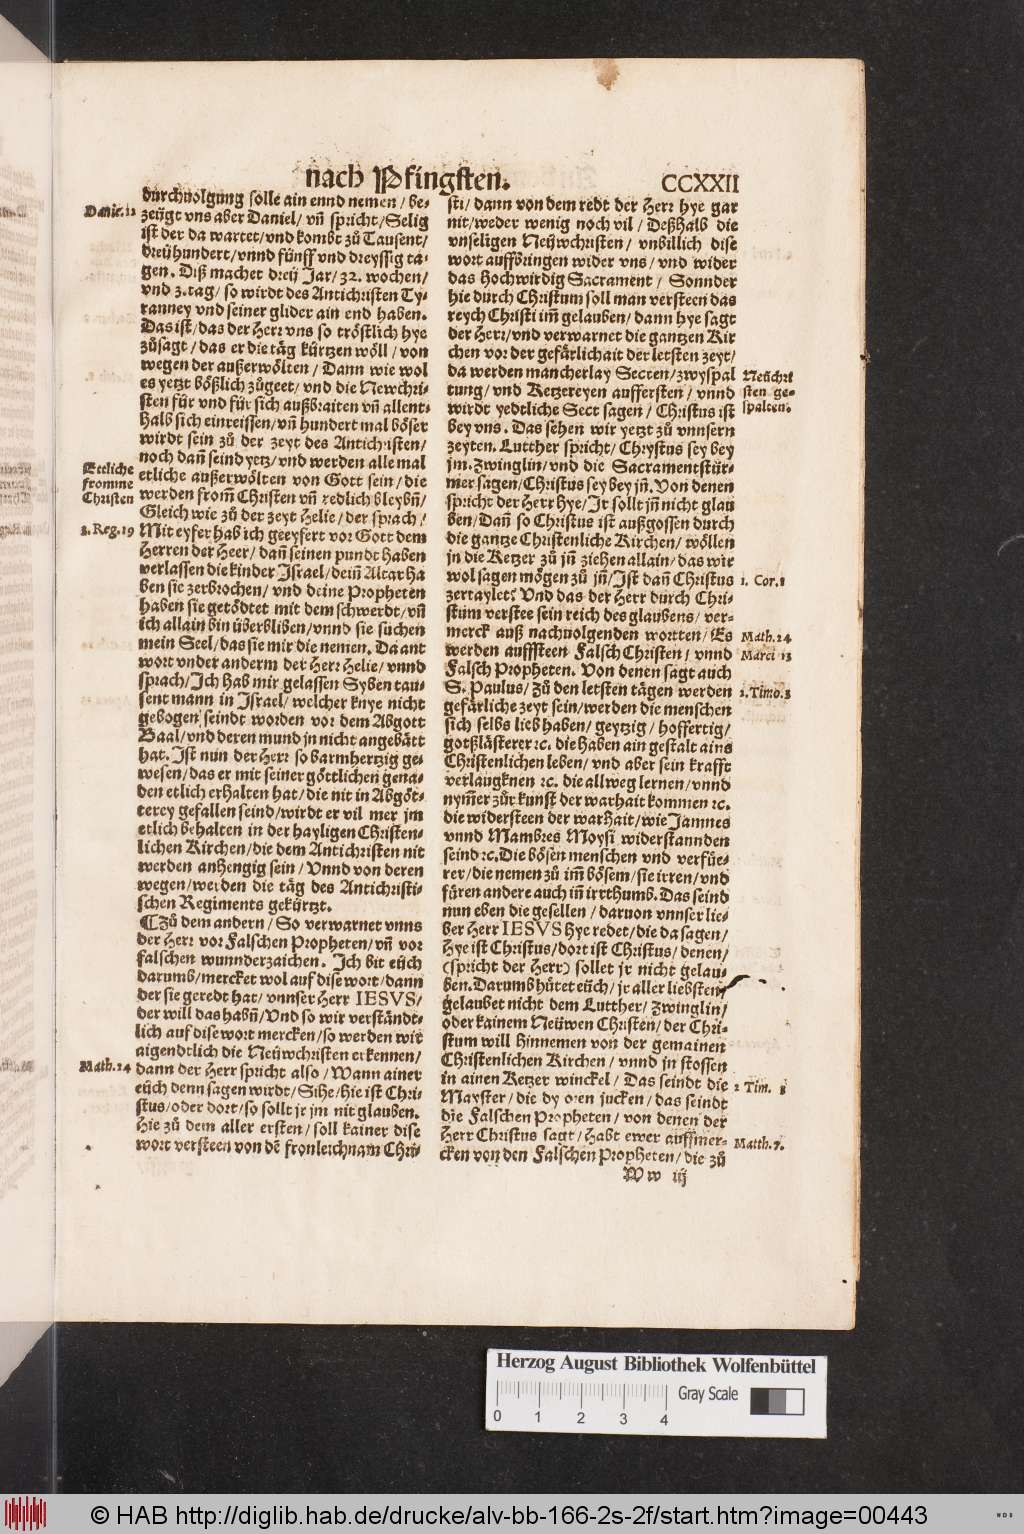 nach Pfingsten.
CCXXII
durchuolgung solle ain ennd nemen / be-
Danie.12
zeügt vns aber Daniel / vñ spricht / Selig
ist der da wartet / vnd kombt zů Tausent /
dreühundert / vnnd fünff vnd dreyssig tä-
gen. Diß machet dreü Jar / 32. wochen /
vnd 3. tag / so wirdt des Antichristen Ty-
ranney vnd seiner glider ain end haben.
Das ist / das der Herr vns so tröstlich hye
zůsagt / das er die täg kürtzen wöll / von
wegen der außerwölten / Dann wie wol
es yetzt bößlich zůgeet / vnd die Newchri-
sten für vnd für sich außbraiten vñ allent-
halb sich einreissen / vñ hundert mal böser
wirdt sein zů der zeyt des Antichristen /
noch dañ seind yetz / vnd werden alle mal
Ettliche
fromme
Christen
etliche außerwölten von Gott sein / die
werden from̃ Christen vñ redlich bleybñ /
Gleich wie zů der zeyt Helie / der sprach /
3. Reg. 19
Mit eyfer hab ich geeyfert vor Gott dem
Herren der Heer / dañ seinen pundt haben
verlassen die kinder Israel / deim̃ Altar ha
ben sie zerbrochen / vnd deine Propheten
haben sie getödtet mit dem schwerdt / vñ
ich allain bin überbliben / vnnd sie suchen
mein Seel / das sie mir die nemen. Da ant
wort vnder anderm der Herr Helie / vnnd
sprach / Ich hab mir gelassen Syben tau-
sent mann in Israel / welcher knye nicht
gebogen seindt worden vor dem Abgott
Baal / vnd deren mund jn nicht angebätt
hat. Ist nun der Herr so barmhertzig ge-
wesen / das er mit seiner göttlichen gena-
den etlich erhalten hat / die nit in Abgöt-
terey gefallen seind / wirdt er vil mer jm
etlich behalten in der hayligen Christen-
lichen Kirchen / die dem Antichristen nit
werden anhengig sein / Vnnd von deren
wegen / werden die täg des Antichristi-
schen Regiments gekürtzt.
¶ Zů dem andern / So verwarnet vnns
der Herr vor Falschen Propheten / vñ vor
falschen wunnderzaichen. Ich bit eüch
darumb / mercket wol auf dise wort / dann
der sie geredt hat / vnnser Herr IESVS /
der will das habñ / Vnd so wir verständt-
lich auf dise wort mercken / so werden wir
aigendtlich die Neüwchristen erkennen /
Math. 24
dann der Herr spricht also / Wann ainer
eüch denn sagen wirdt / Sihe / hie ist Chri-
stus / oder dort / so sollt jr jm nit glauben.
Hie zů dem aller ersten / soll kainer dise
wort versteen von dẽ fronleichnam Chri-
sti / dann von dem redt der Herr hye gar
nit / weder wenig noch vil / Deßhalb die
vnseligen Neüwchristen / vnbillich dise
wort auffbringen wider vns / vnd wider
das Hochwirdig Sacrament / Sonnder
hie durch Christum soll man versteen das
reych Christi im̃ gelauben / dann hye sagt
der Herr / vnd verwarnet die gantzen Kir
chen vor der gefärlichait der letsten zeyt /
da werden mancherlay Secten / zwyspal
Neüchri
sten ge-
spalten.
tung / vnd Ketzereyen auffersten / vnnd
wirdt yedtliche Sect sagen / Christus ist
bey vns. Das sehen wir yetzt zů vnnsern
zeyten. Lutther spricht / Chrystus sey bey
jm. Zwinglin / vnd die Sacramentstür-
mer sagen / Christus sey bey jñ. Von denen
spricht der Herr hye / Jr sollt jñ nicht glau
ben / Dañ so Christus ist außgossen durch
die gantze Christenliche Kirchen / wöllen
jn die Ketzer zů jñ ziehen allain / das wir
1. Cor. 1
wol sagen mögen zů jñ / Ist dañ Christus
zertaylet? Vnd das der Herr durch Chri-
stum verstee sein reich des glaubens / ver-
Math. 24
merck auß nachuolgenden wortten / Es
Marci 13
werden auffsteen Falsch Christen / vnnd
Falsch Propheten. Von denen sagt auch
2. Timo. 3
S. Paulus / Zů den letsten tägen werden
gefärliche zeyt sein / werden die menschen
sich selbs lieb haben / geytzig / hoffertig /
gotßlästerer ꝛc. die haben ain gestalt ains
Christenlichen leben / vnd aber sein krafft
verlaugknen ꝛc. die allweg lernen / vnnd
nym̃er zůr kunst der warhait kommen ꝛc.
die widersteen der warhait / wie Jannes
vnnd Mambres Moysi widerstannden
seind ꝛc. Die bösen menschen vnd verfüe-
rer / die nemen zů im̃ bösem / sie irren / vnd
füren andere auch im̃ irrthumb. Das seind
nun eben die gesellen / daruon vnnser lie-
ber Herr IESVS hye redet / die da sagen /
Hye ist Christus / dort ist Christus / denen /
(spricht der Herr) sollet jr nicht gelau-
ben. Darumb hütet eüch / jr aller liebsten /
gelaubet nicht dem Lutther / Zwinglin /
oder kainem Neüwen Christen / der Chri-
stum will hinnemen von der gemainen
Christenlichen Kirchen / vnnd jn stossen
2 Tim. 3
in ainen Ketzer winckel / Das seindt die
Mayster / die dy oren jucken / das seindt
die Falschen Propheten / von denen der
Matth. 7.
Herr Christus sagt / Habt ewer auffmer-
cken von den Falschen Propheten / die zů
Ww iij
Herzog August Bibliothek Wolfenbüttel
Gray Scale
0 1 2 3 4
© HAB http://diglib.hab.de/drucke/alv-bb-166-2s-2f/start.htm?image=00443